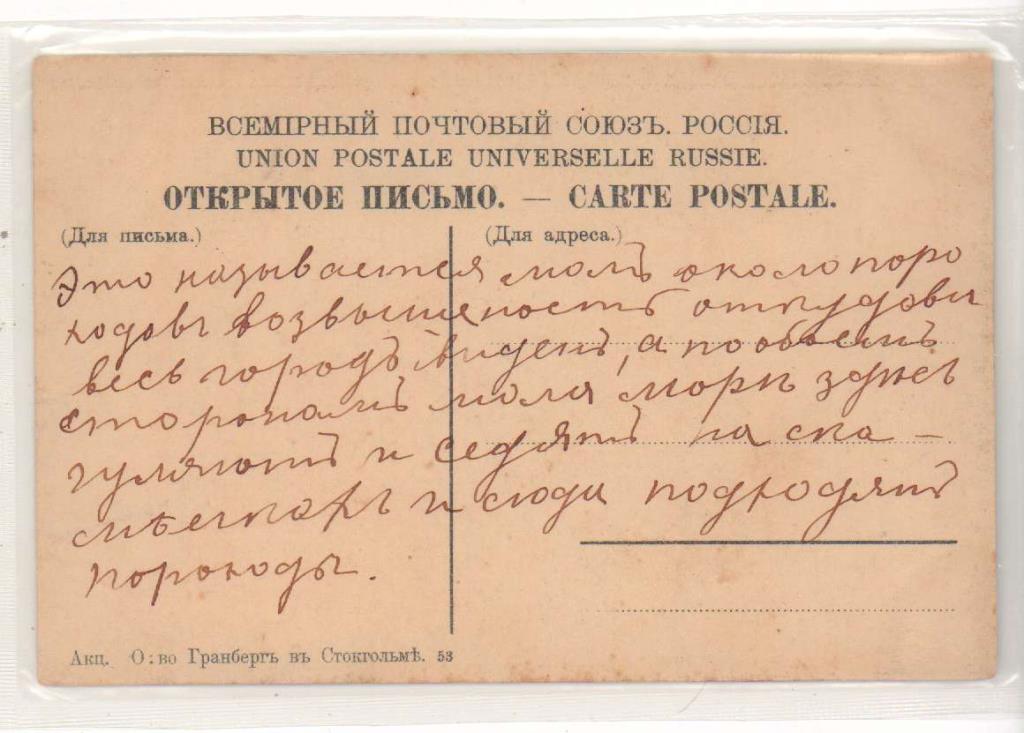 ВСЕМІРНЫЙ ПОЧТОВЫЙ СОЮЗЪ. РОССІЯ.
UNION POSTALE UNIVERSELLE RUSSIE.
ОТКРЫТОЕ ПИСЬМО. — CARTE POSTALE.
(Для письма.) (Для адреса.)
Это называется молъ около поро
ходовъ возвышеность откудовы
весь городъ виденъ, а по обоемъ
сторонамъ моля моря здѣсь
гуляютъ и седятъ на ска-
мѣечкахъ и сюда подходятъ
пороходы.
Акц. О:во Гранбергъ въ Стокгольмѣ. 53